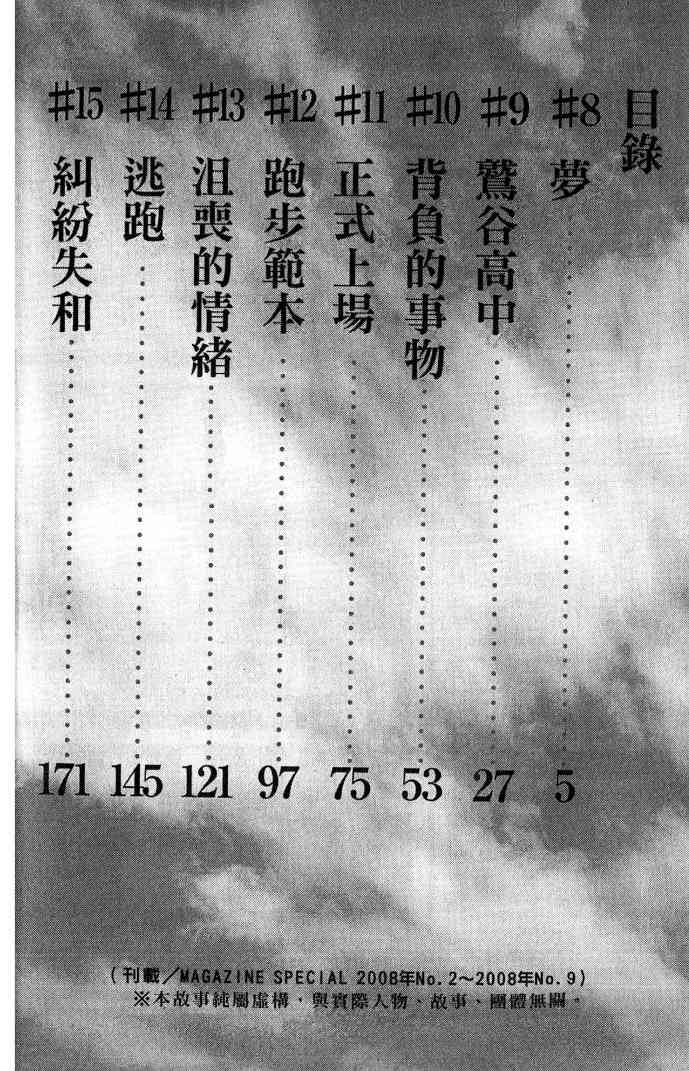 目錄
#8 夢 5
#9 鷲谷高中 27
#10 背負的事物 53
#11 正式上場 75
#12 跑步範本 97
#13 沮喪的情緒 121
#14 逃跑 145
#15 糾紛失和 171
(刊載／MAGAZINE SPECIAL 2008年No.2～2008年No.9)
※本故事純屬虛構，與實際人物、故事、團體無關。